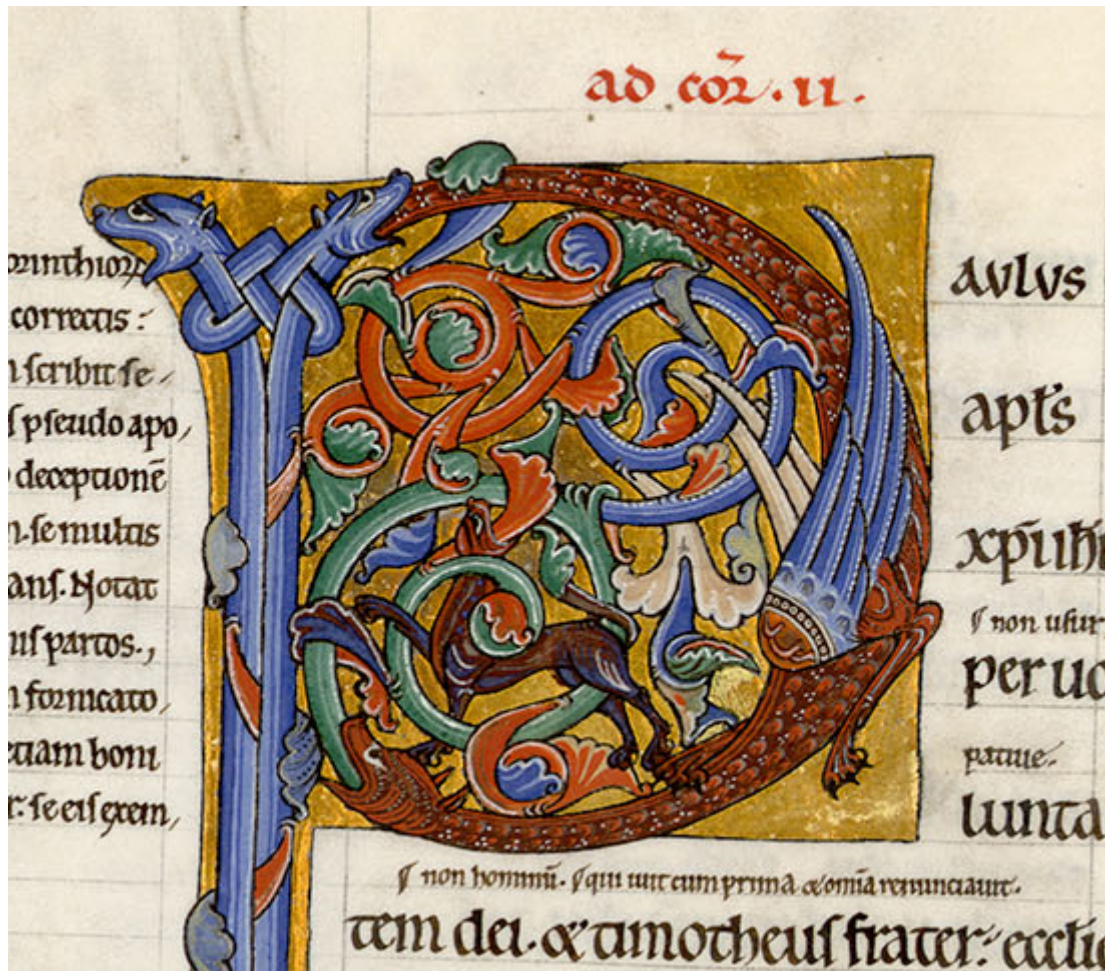 ad cor̄ · ii ·
corinthior̄
correctis :
scribit se
pseudo apo
deceptionē
se multis
ans. Notat
partos.,
fornicato
etiam boni
se eis exem
PAULUS
apłs
xp̄i ih̄
non usur
per uo
patiue.
lunta
non hominū. qui uiuit cum prima & omīa renunciauit.
tem dei. & timotheus frater: eccłie